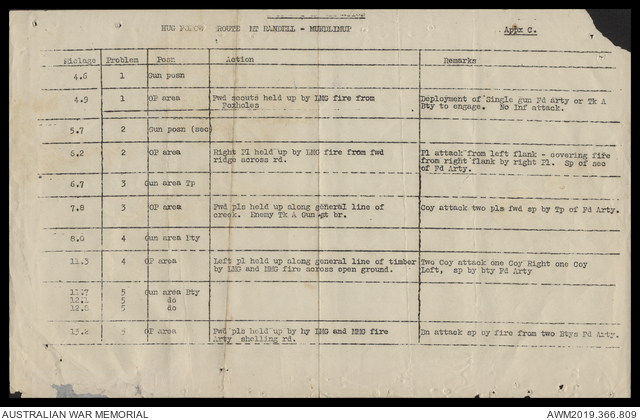 HUG FORCE ROUTE MT RANDELL - MUNDLINUP Appx C.
Mielage Problem Posn Action Remarks
4.6 1 Gun posn
4.9 1 OP area Fwd scouts held up by LMG fire from Deployment of Single gun Fd Arty or Tk A
Foxholes Bty to engage. No Inf attack.
5.7 2 Gun posn (sec)
6.2 2 OP area Right Pl held up by LMG fire from fwd Pl attack from left flank - covering fire
ridge across rd. from right flank by right Pl. Sp of sec
of Fd Arty.
6.7 3 Gun area Tp
7.8 3 OP area Fwd pls held up along general line of Coy attack two pls fwd sp by Tp of Fd Arty.
creek. Enemy Tk A Gun at br.
8.0 4 Gun area Bty
11.3 4 OP area Left pl held up along general line of timber Two Coy attack one Coy Right one Coy
by LMG and MMG fire across open ground. Left, sp by bty Fd Arty
11.7 5 Gun area Bty
12.1 5 do
12.8 5 do
5 OP area Fwd pls held up by hy LMG and MMG fire Bn attack sp by fire from two Btys Fd Arty.
Arty shelling rd.
AUSTRALIAN WAR MEMORIAL AWM2019.366.809